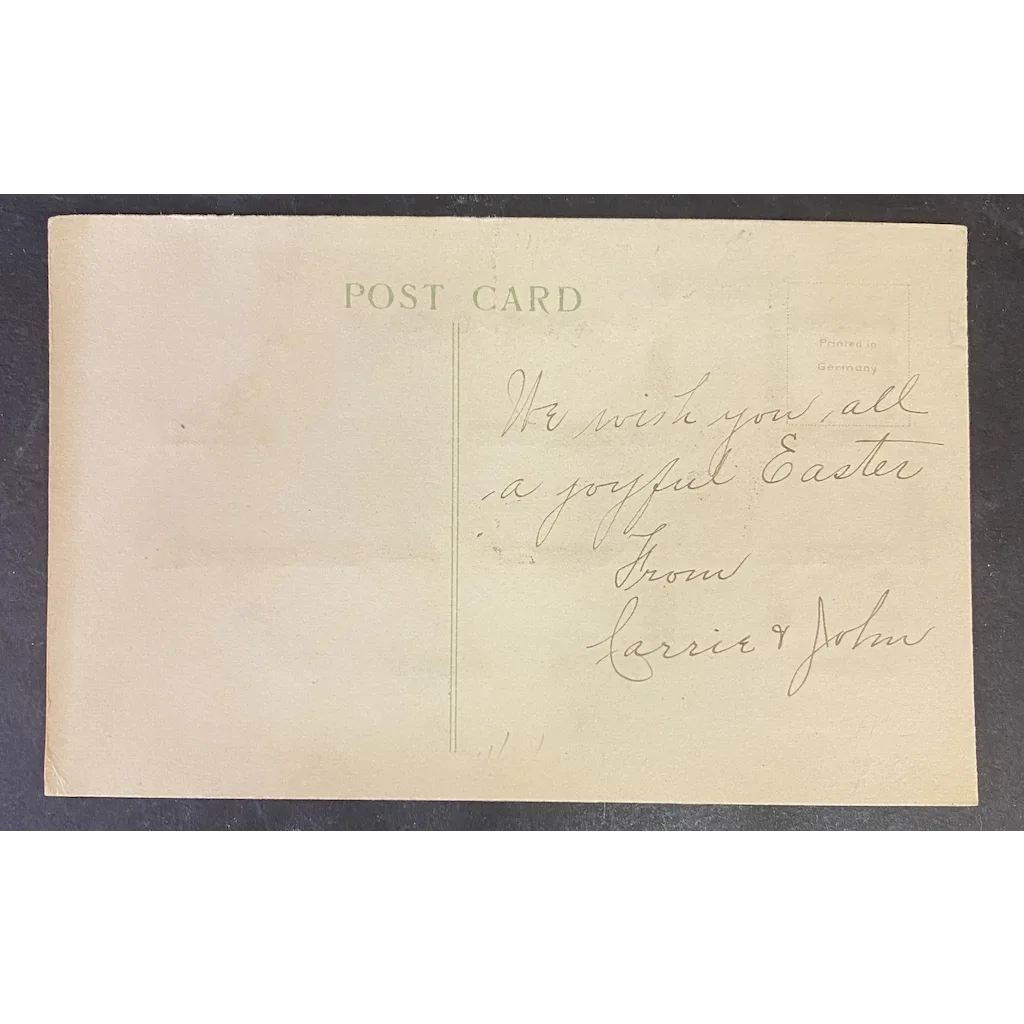 POST CARD
Printed in
Germany
We wish you all
a joyful Easter
From
Carrie & John